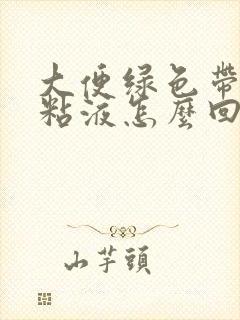 大便绿色带
粘液怎麼回
山芋頭